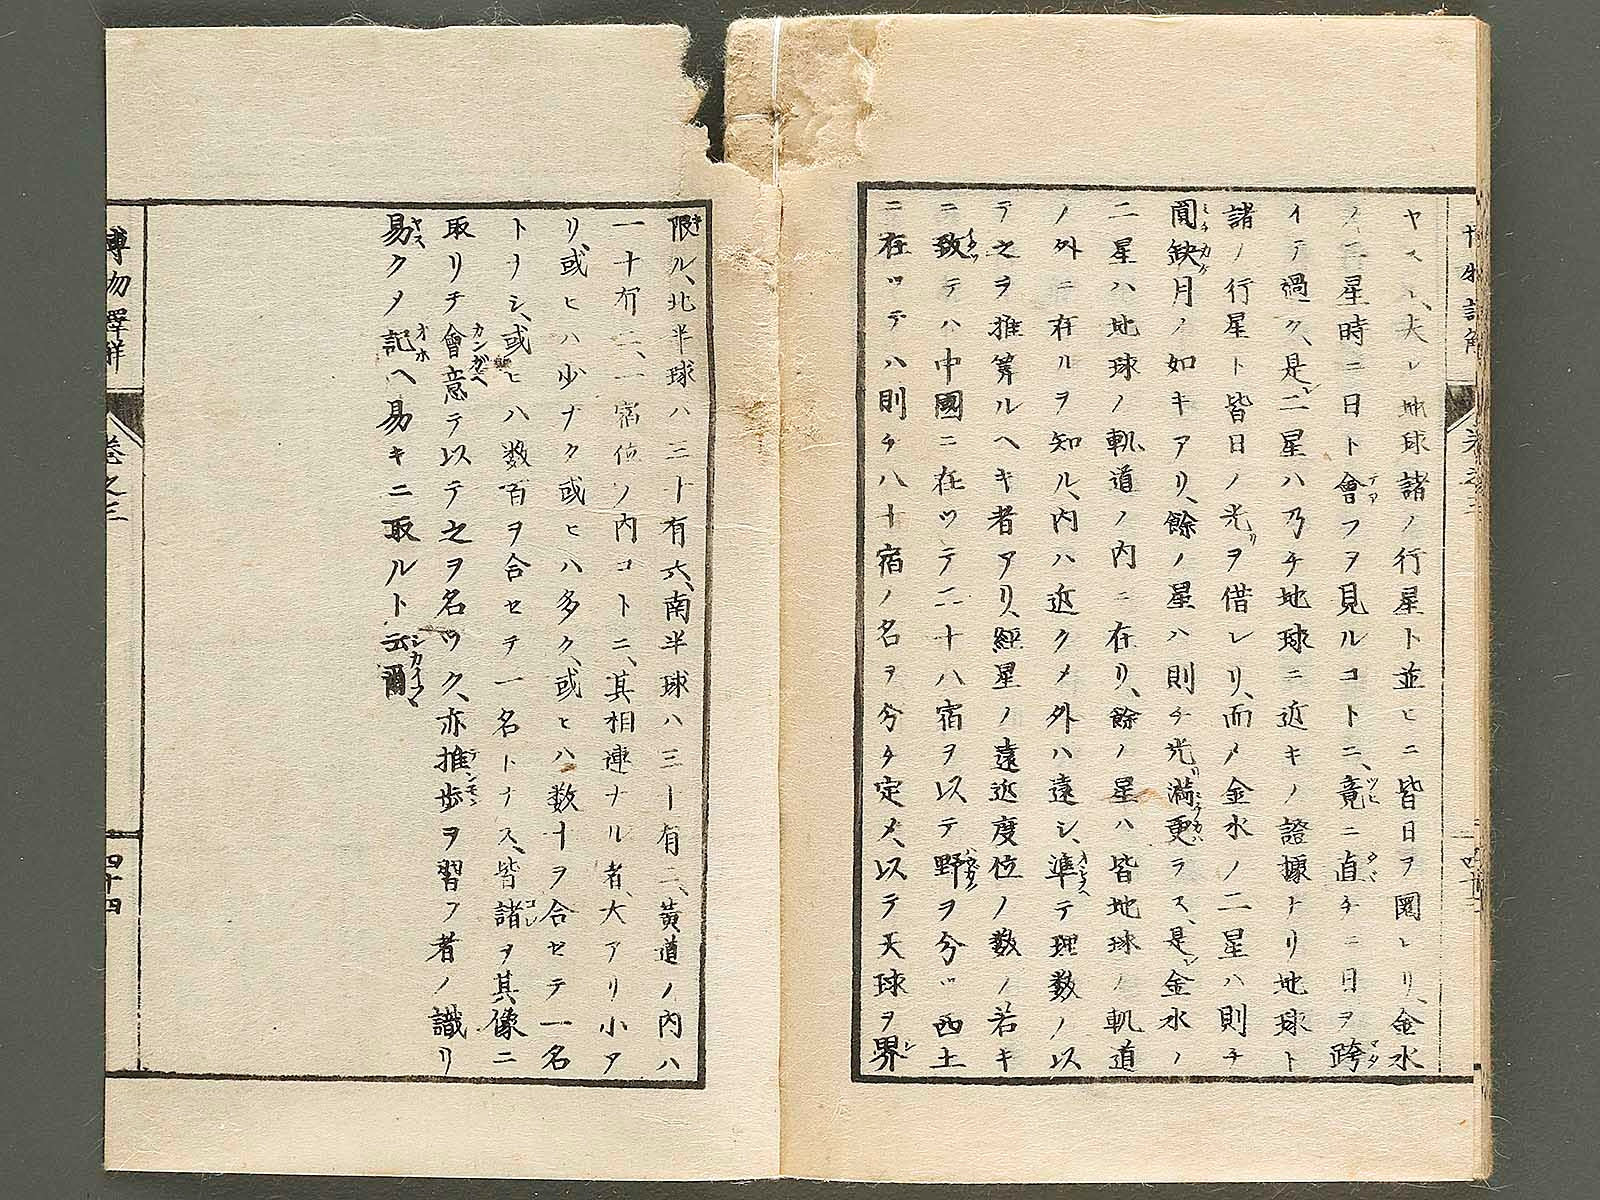 ヤスシ、夫レ地球諸ノ行星ト並ヒニ皆日ヲ圜レリ、金水
ノ二星時ニ日ト會フヲ見ルコトニ、竟ニ直チニ日ヲ跨
イテ過ク、是二星ハ乃チ地球ニ近キノ證據トリ地球ト
諸ノ行星ト皆日ノ光ヲ借レリ、而メ金水ノ二星ハ則チ
間缺月ノ如キアリ、餘ノ星ハ則チ光満更ラス、是金水ノ
二星ハ地球ノ軌道ノ内ニ在リ、餘ノ星ハ皆地球ノ軌道
ノ外ニ在ルヲ知ル、内ハ近クメ外ハ遠シ、準テ理数ノ以
テ之ヲ推筭ルヘキ者アリ、經星ノ遠近度位ノ数ノ若キ
ニ致テハ中國ニ在ツテ二十八宿ヲ以テ野ヲ分ツ西土
ニ在ツテハ則チ八十宿ノ名ヲ分チ定メ、以テ天球ヲ界
限ル、北半球ハ三十有六、南半球ハ三十有二、黄道ノ内ハ
一十有二、一宿位ノ内コトニ、其相連ナル者、大アリ小ア
リ或ヒハ少ナク或ヒハ多ク、或ヒハ数十ヲ合セテ一名
トナシ、或ヒハ数百ヲ合セテ一名トナス、皆諸ヲ其像ニ
取リチ會意テ以テ之ヲ名ツク、亦推歩ヲ習フ者ノ識リ
易クメ記ヘ易キニ取ルト云爾
博物譯解
卷之三
四十四